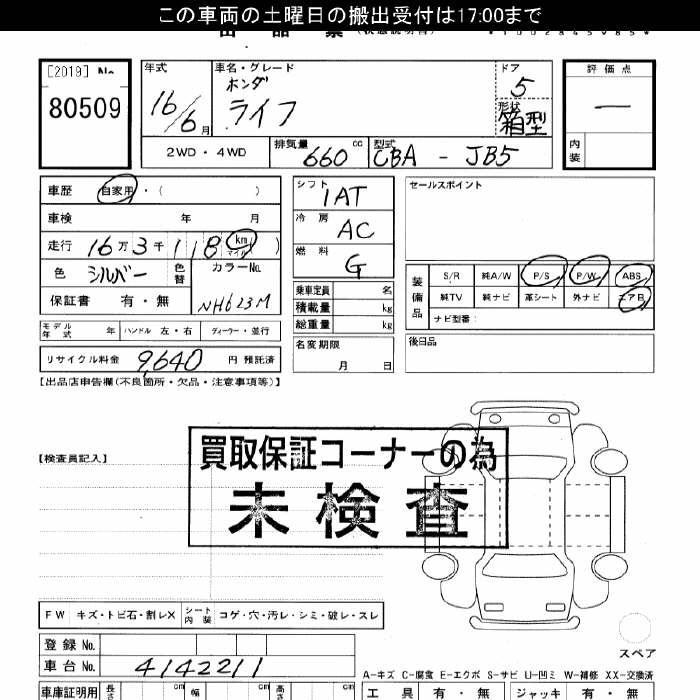 この車両の土曜日の搬出受付は17:00まで
[2019] No
80509
年式 16/6月
車名・グレード ホンダ
ライフ
ドア 5
形状 箱型
評価点
内装
2WD・4WD
排気量 660 cc
型式 CBA - JB5
車歴 自家用・( )
車検 年 月
走行 16万3千118 km マイル )
色 シルバー 色替
カラーNo. NH623M
保証書 有・無
モデル年式 年 ハンドル 左・右 ディーラー・並行
リサイクル料金 9,640 円 預託済
シフト 1AT
冷房 AC
燃料 G
乗車定員 名
積載量 kg
総重量 kg
名変期限
月 日
セールスポイント
装備品
S/R 純A/W P/S P/W ABS
純TV 純ナビ 革シート 外ナビ エアB
ナビ型番:
後日品
【出品店申告欄(不良箇所・欠品・注意事項等)】
【検査員記入】
買取保証コーナーの為
未検査
FW キズ・トビ石・割レX シート内装 コゲ・穴・汚レ・シミ・破レ・スレ
登録No.
車台No. 4142211
スペア
A-キズ C-腐食 E-エクボ S-サビ U-凹ミ W-補修 XX-交換済
車庫証明用 長さ cm 幅 cm 高さ cm
工具 有・無 ジャッキ 有・無